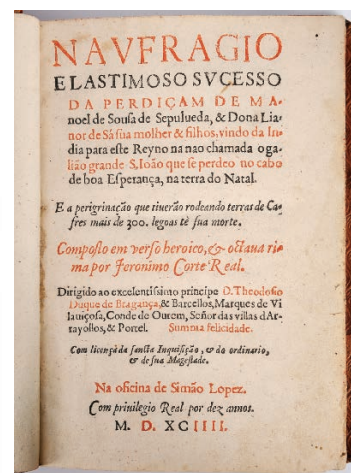 NAVFRAGIO
E LASTIMOSO SVCESSO
DA PERDIÇAM DE MA-
noel de Sousa de Sepulueda, & Dona Lia-
nor de Sá sua molher & filhos, vindo da In-
dia para este Reyno na nao chamada o ga-
lião grande S. Ioão que se perdeo no cabo
de boa Esperança, na terra do Natal.
E a perigrinação que tiuerão rodeando terras de Ca-
fres mais de 300. legoas tè sua morte.
Composto em verso heroico, & octaua ri-
ma por Jeronimo Corte Real.
Dirigido ao excelentissimo principe D. Theodosio
Duque de Bragança, & Barcellos, Marques de Vi
lauiçosa, Conde de Ourem, Señor das villas d'Ar-
rayollos, & Portel. Summa felicidade.
Com licença da sancta Inquisição, & do ordinario,
& de sua Magestade.
Na oficina de Simão Lopez.
Com priuilegio Real por dez annos.
M. D. XCIIII.